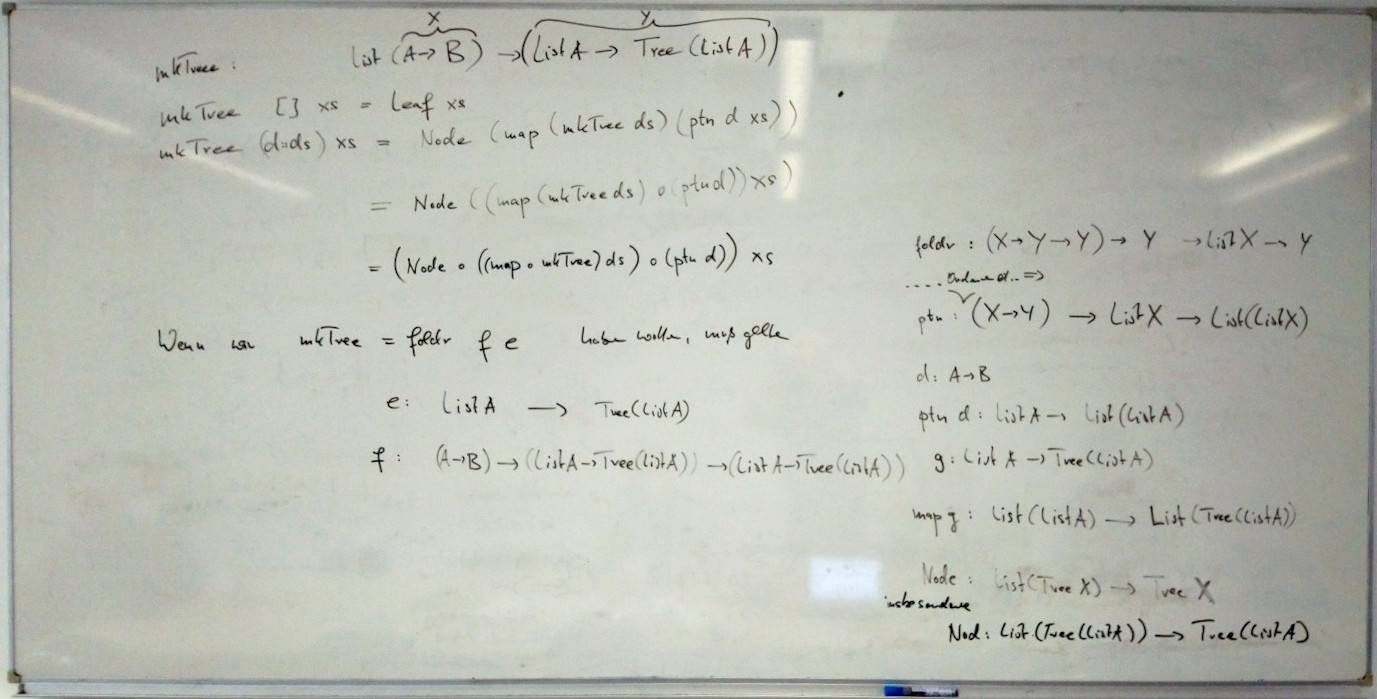 X Y
mkTree : List (A→B) → (List A → Tree (List A))
mkTree [] xs = Leaf xs
mkTree (d::ds) xs = Node (map (mkTree ds) (ptn d xs))
= Node ((map (mkTree ds) ∘ (ptn d)) xs)
= (Node ∘ ((map ∘ mkTree) ds) ∘ (ptn d)) xs
Wenn wir mkTree = foldr f e haben wollen, muß gelten
e: List A → Tree (List A)
f: (A→B) → (List A → Tree (List A)) → (List A → Tree (List A))
foldr : (X→Y→Y) → Y → List X → Y
.... ⇒
ptn : (X→Y) → List X → List (List X)
d: A→B
ptn d : List A → List (List A)
g: List A → Tree (List A)
map g : List (List A) → List (Tree (List A))
Node : List (Tree X) → Tree X
insbesondere
Nod : List (Tree (List A)) → Tree (List A)